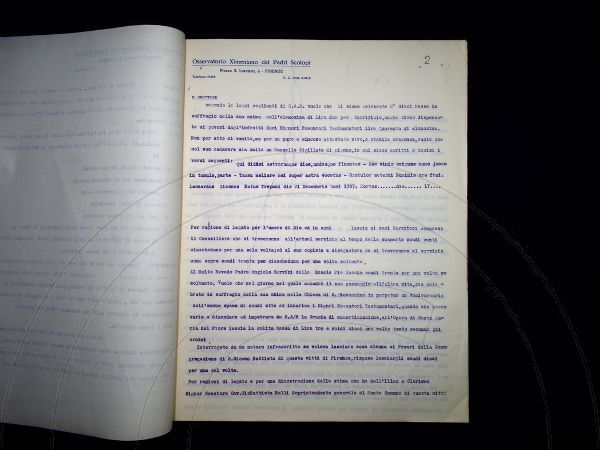 2
Osservatorio Ximeniano dei Padri Scolopi
Piazza S. Lorenzo, - FIRENZE
secondo le leggi veglianti di S.A.R. vuole che li siano celebrate N° dieci Messe in
suffragio della sua anima coll'elemosina di lire due per Sacrifizio, siano dispensa-
te ai poveri dagl'infratti Suoi Signori Esecutori Testamentari lire quaranta di elemosine.
Non per atto di vanità, ma per un puro e sincero attestato vivo, e stabile credenza, vuole che
col suo cadavere sia unito un Cannello Sigillato di piombo, in cui siano scritti o incisi i
versi seguenti:
in tumulo, parte - Tamen meliore mei super astra - Gratulor aeterni Numinis ore frui.
Leonardus Ximenes Natus Trepani die 21 Decembris Anni Mortus......die...... 17....
Per ragione di Legato per l'amore di Dio ed in ogni lascia ai suoi Servitori compreso
il Cancelliere che si troveranno all'attual servizio al tempo della sua morte scudi venti
ciascheduno per una sola volta; ed al suo copista e disegnatore se si troveranno al servizio
come sopra scudi trenta per ciascheduno per una volta soltanto.
Al Molto Revdo Padre Angiolo delle Scuole Pie lascia scudi trenta per una volta so
soltanto. Vuole che nel giorno nel quale accadrà il suo passaggio all'altra vita, sia cele -
brato in suffragio della sua anima nella Chiesa di S. Giovannino in perpetuo un Anniversario
coll'annua spesa di scudi otto ed incarica i Signori Esecutori Testamentari, quando sia neces
sario a dimandare ed impetrare da S.A.R la Grazia di all'Opera di Santa Ma
ria del Fiore lascia la solita tassa di Lire tre e soldi dieci una volta tanto secondo gli
ordini
Interrogato da me notaro infrascritto se voleva lasciare cosa alcuna ai Poveri della Cong
gregazione di S. Giovan Battista di questa città di Firenze, rispose lasciargli scudi dieci
per una sol volta.
Per ragioni di legato e per una dimostrazione della stima che ha dell'Illmo e Clarismo
Signor Senatore Cav. Giobattista Nelli Soprintendente generale al Monte Comune di questa città